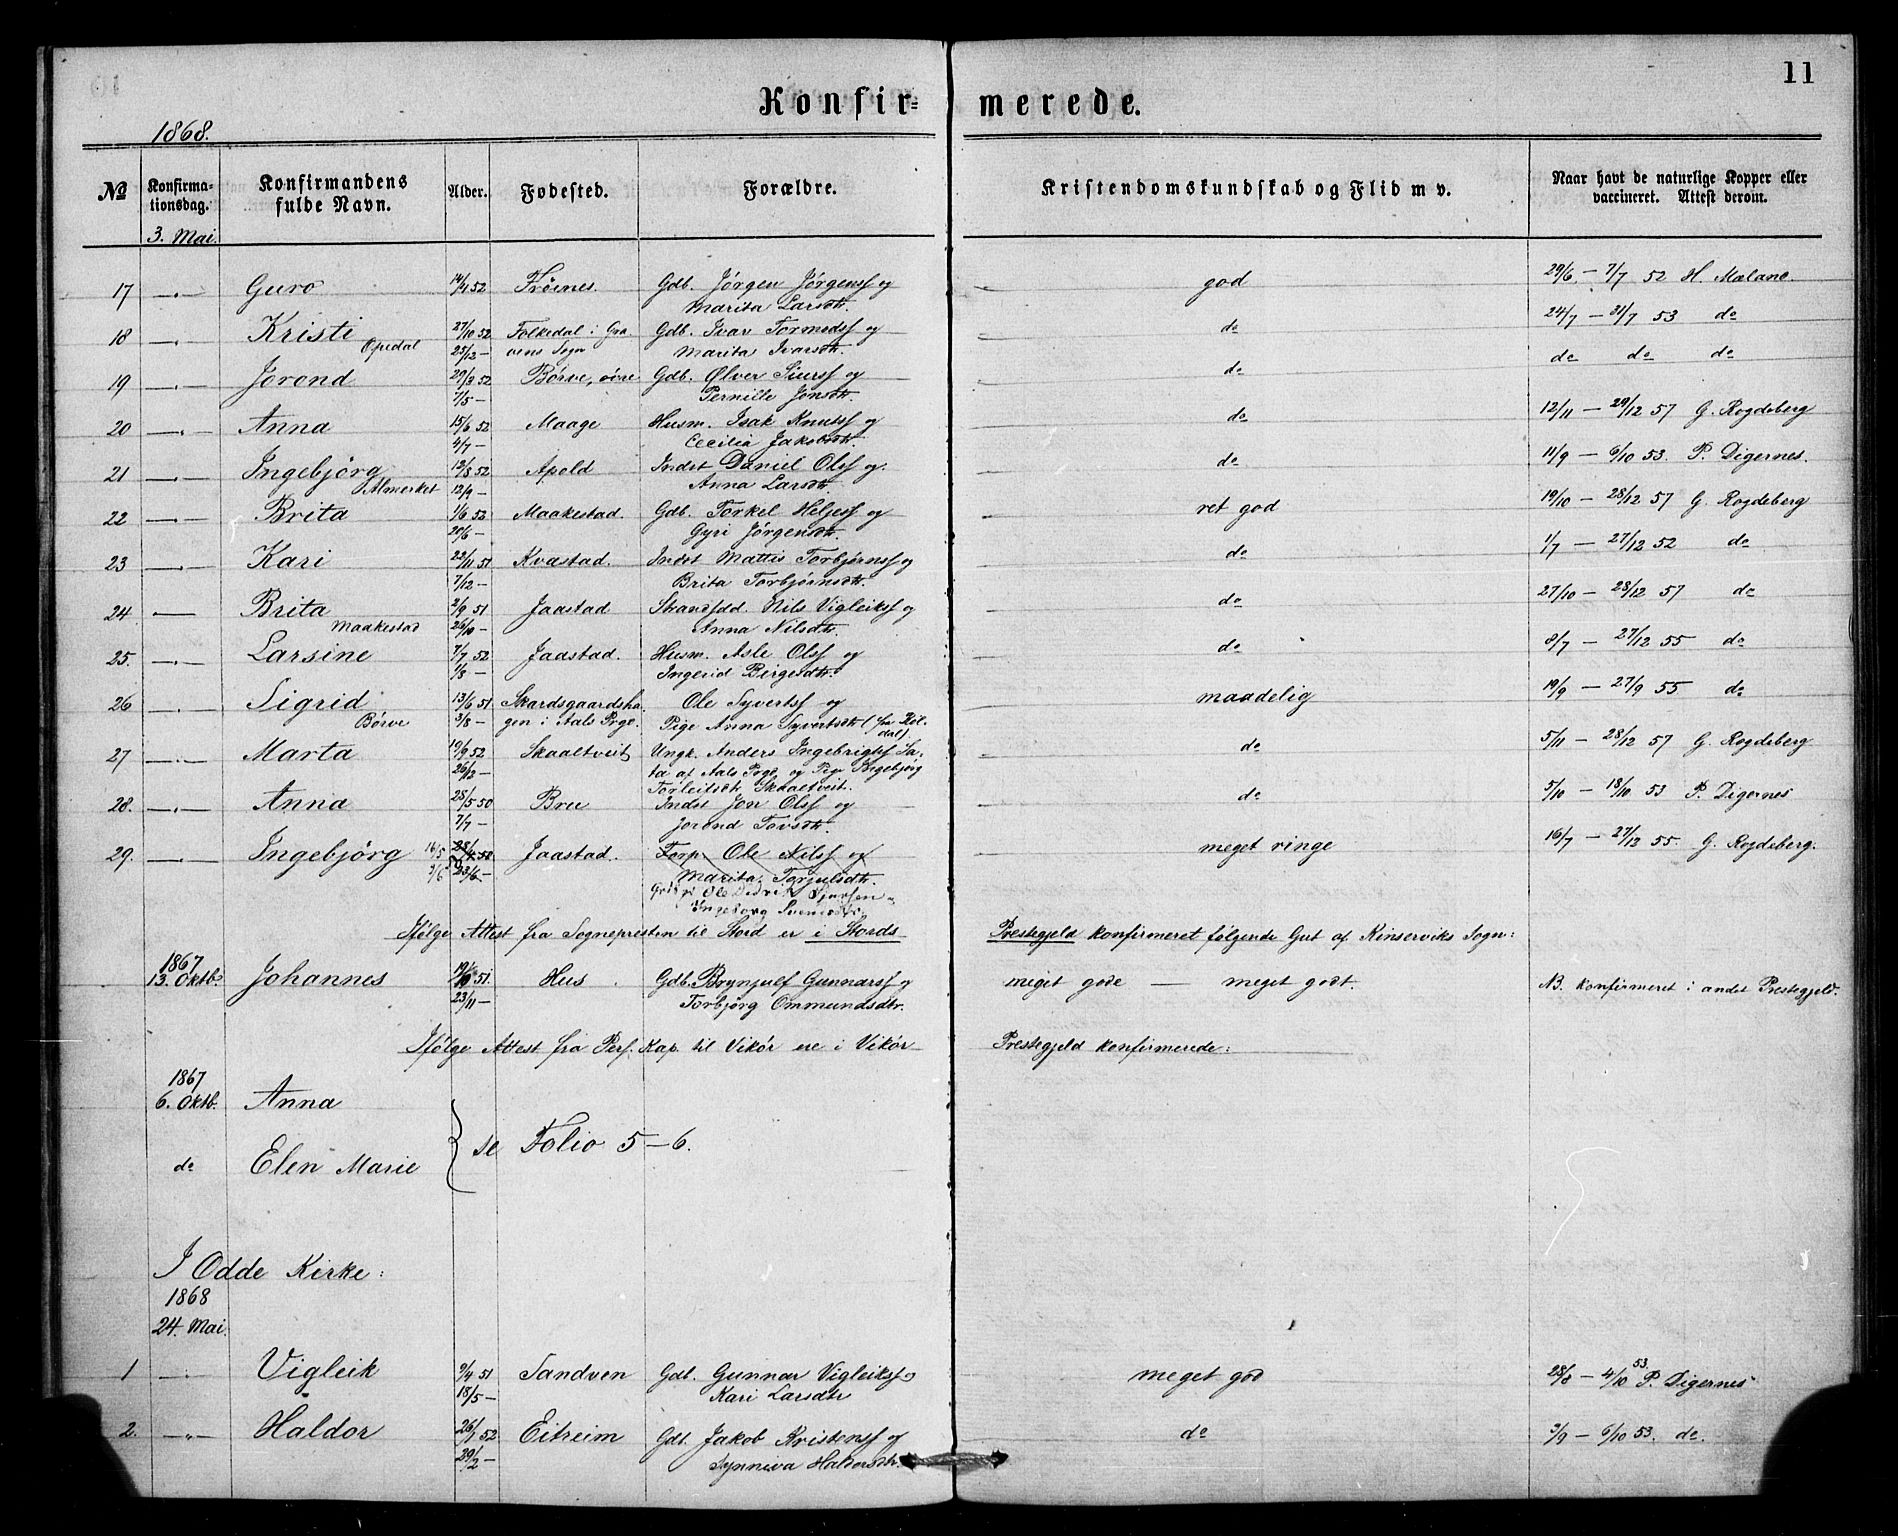 11
Konfir= merede.
1868.
No Konfirma-tionsdag. Konfirmandens fulde Navn. Alder. Fødested. Forældre. Kristendomskundskab og Flid m v. Naar havt de naturlige Kopper eller vaccineret. Attest derom.
3. Mai.
17 —„— Guro 14/11 52 Frøines. Gdb. Jørgen Jørgenss og god 29/6 — 7/7 52 H. Mælane.
Marita Larsdtr.
18 —„— Kristi 27/10 52 Folkedal i Gra Gdb. Ivar Tormodss og do 24/7 — 31/7 53 do
Opedal 25/12 — vens Sogn Marita Ivarsdtr.
19 —„— Jorond 29/3 52 Børve, øvre Gdb. Ølver Siurss og do do do do
7/5 — Pernille Jonsdtr.
20 —„— Anna 15/6 52 Maage Husm. Isak Knutss og do 12/11 — 29/12 57 G. Rogdeberg
4/7 — Cecilia Jakobsdtr.
21 —„— Ingebjörg 12/8 52 Apold Indst Daniel Olss og do 11/9 — 6/10 53. P. Digernes.
Almerket 12/9 — Anna Larsdtr.
22 —„— Brita 1/6 52 Maakestad. Gdb. Torkel Heljess og ret god 19/10 — 28/12 57 G. Rogdeberg
20/6 — Gyri Jørgensdtr.
23 —„— Kari 22/11 51 Kvastad. Indst Mattis Torbjørnss og do 1/7 — 27/12 52 do
7/12 — Brita Torbjørnsdtr.
24 —— Brita 2/9 51 Jaastad Strandsdd. Nils Vigleikss og do 27/10 — 28/12 57 do
Maakestad 26/10 — Anna Nilsdtr.
25. —„— Larsine 7/7 52 Jaastad. Husm. Asle Olss og do 8/7 — 27/12 55 do
1/8 — Ingerid Birgesdtr.
26 —„— Sigrid 13/6 51 Skardsgaardsha Ole Syvertss og maadelig 19/9 — 27/9 55 do
Børve 3/8 — gen i Aals Prge. Pige Anna Syvertsdtr (fra Röl
dal)
27 —„— Marta 19/9 52 Skaaltveit Ungk. Anders Ingebrigtss Sa- do 5/11 — 28/12 57 G. Rogdeberg
26/2 — ta af Aals Prgd. og Pige Ingebjörg
Torleifsdtr Skaaltveit.
28. —„— Anna 28/5 50 Bru Indst Jon Olss og do 5/10 — 18/10 53 P. Digernes
7/7 — Jorond Tovsdtr.
29. —„— Ingebjörg 16/5 28/4 50 Jaastad. Torp. Ole Nilss og meget ringe 16/7 — 27/12 55. G. Rogdeberg.
2/6 50 23/6 — Marita Torjulsdtr.
Gdbr Ole Didrik Sjursen
Ingeborg Svensdtr.
Ifølge Attest fra Sognepresten til Stord er i Stords Prestegjeld konfirmeret følgende Gut af Kinserviks Sogn:
1867
13. Oktb. Johannes 19/10 51. Hus. Gdb. Brynjulf Gunnarss og meget gode — meget godt. NB. Konfirmeret i andet Prestegjeld.
23/11 — Torbjörg Ommundsdtr.
Ifølge Attest fra Pers. Kap. til Vikör ere i Vikör Prestegjeld konfirmerede:
1867
6. Oktb. Anna
{ se Folio 5—6.
do Elen Marie
I Odde Kirke:
1868
24. Mai.
1 —„— Vigleik 9/4 51 Sandven Gdb. Gunnar Vigleikss meget god 28/8 — 4/10 53. P. Digernes
18/5 — Kari Larsdtr
2. —„— Haldor 26/1 52 Eitreim Gdb. Jakob Kristenss og do 3/9 — 6/10 53. do.
29/2 — Synneva Haldorsdtr.